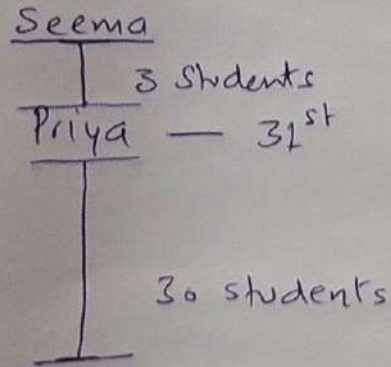 Seema
3 students
Priya — 31st
30 students